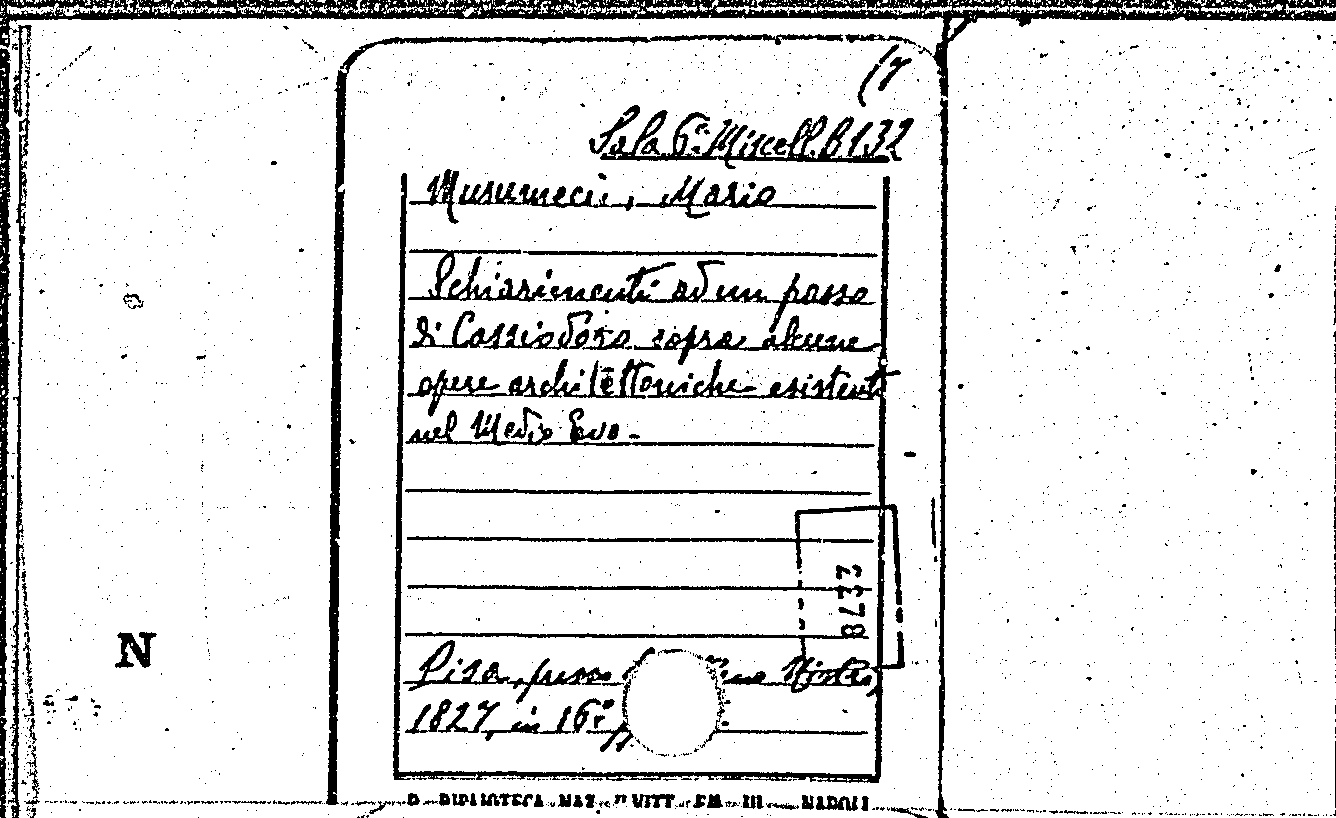 (7
Sala 6ª Miscell. B 132
Musumeci, Mario
Schiarimenti ad un passo
di Cassiodoro sopra alcune
opere architettoniche esistenti
nel Medio Evo -
2378
N
Pisa, presso
1827, in 16º
R. BIBLIOTECA NAZ. "VITT. EM. III" NAPOLI